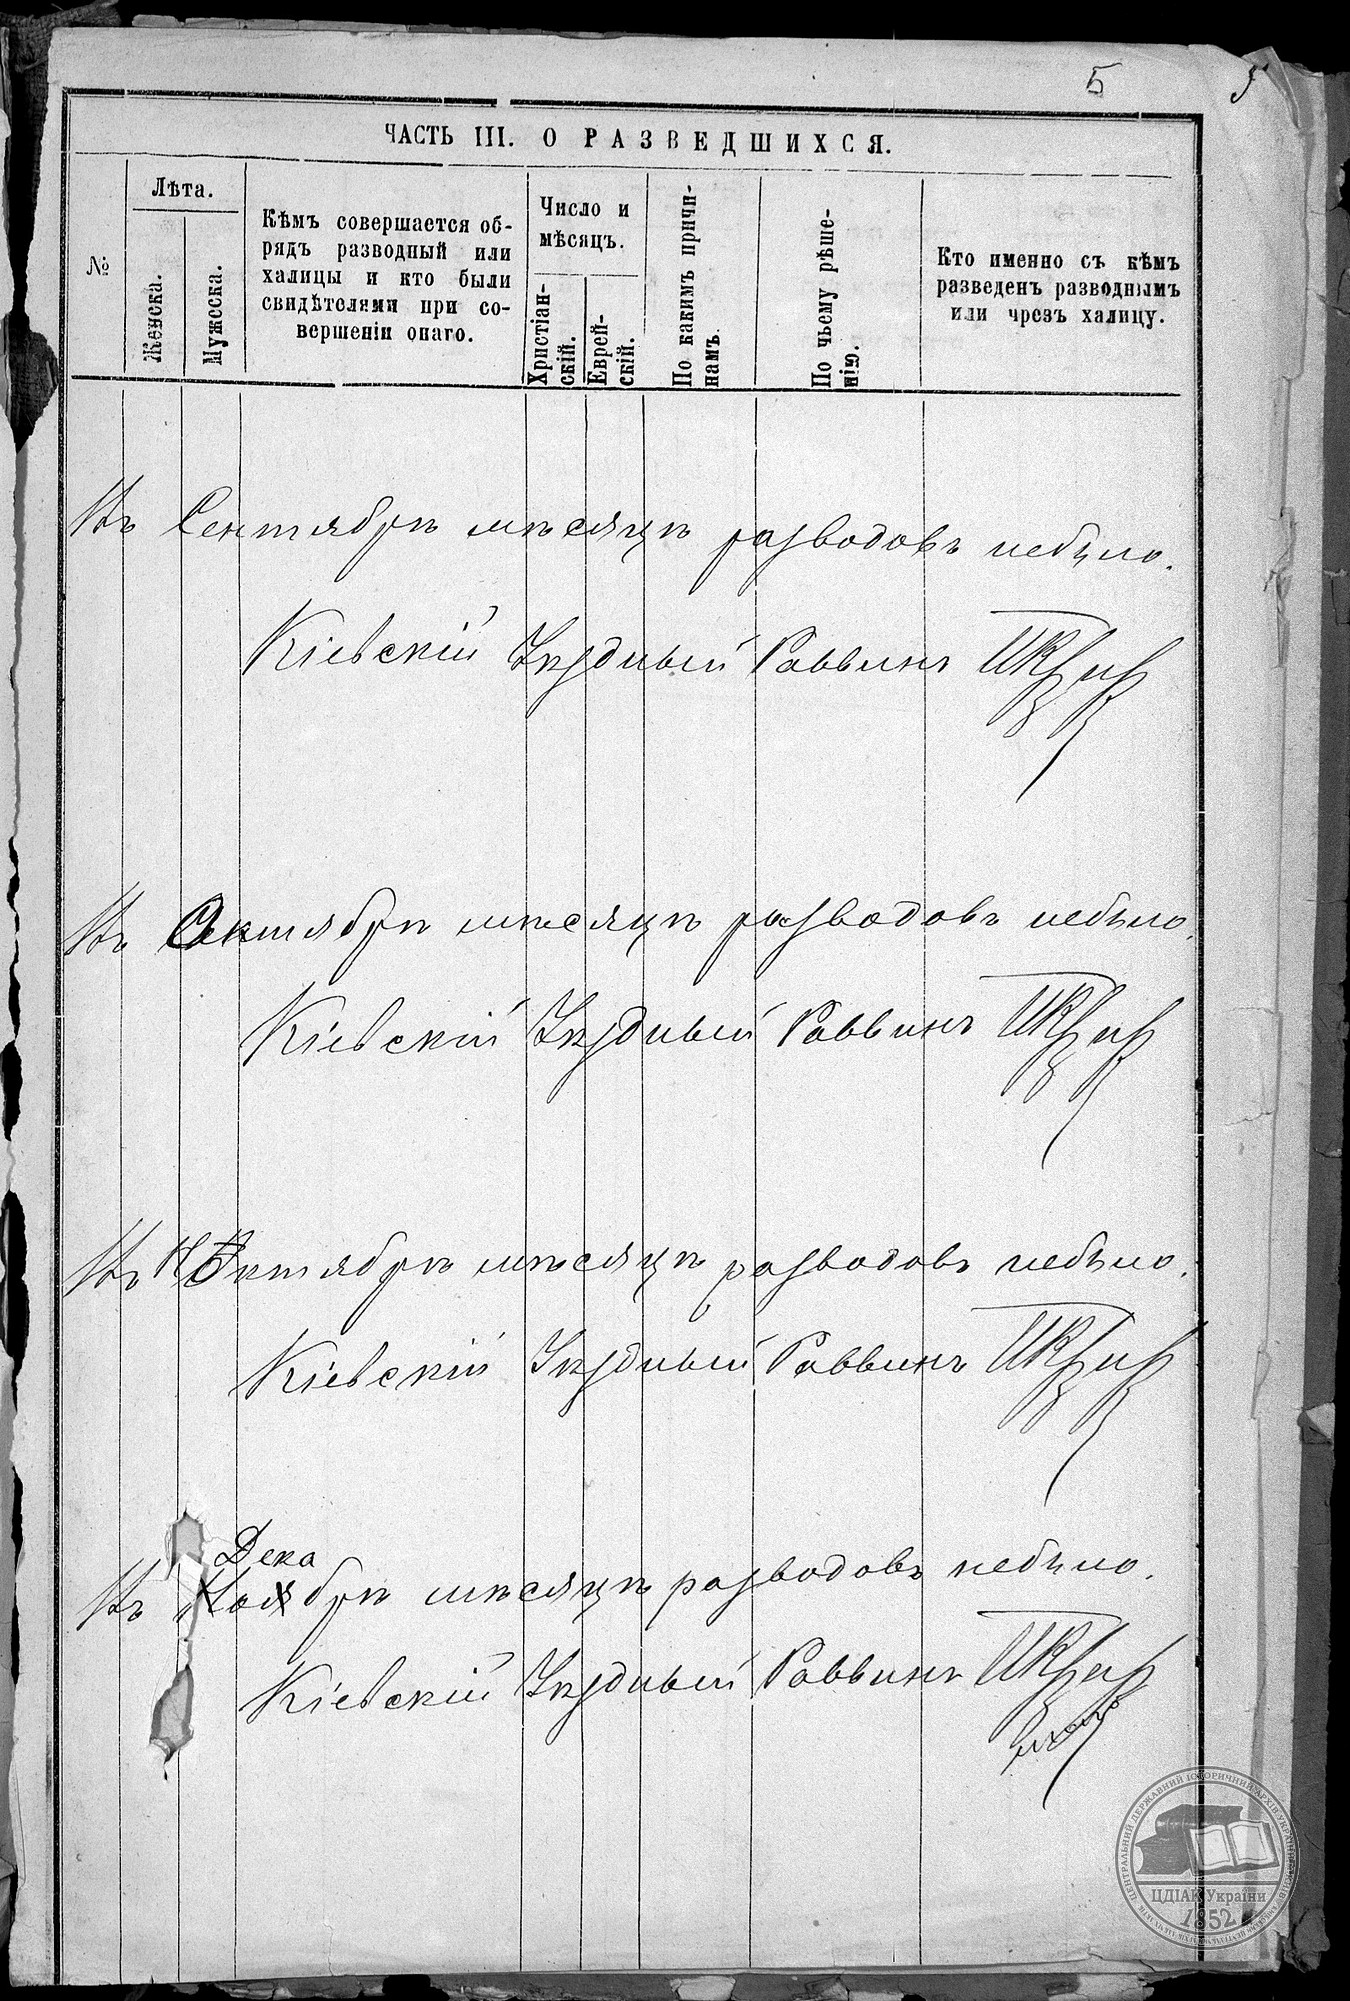 5
ЧАСТЬ III. О РАЗВЕДШИХСЯ.
№
Лѣта.
Женска.
Мужеска.
Кѣмъ совершается об-
рядъ разводный или
халицы и кто были
свидѣтелями при со-
вершеніи онаго.
Число и
мѣсяцъ.
Христіан-
скій.
Еврей-
скій.
По какимъ причи-
намъ.
По чьему рѣше-
нію.
Кто именно съ кѣмъ
разведенъ разводнымъ
или чрезъ халицу.
Въ Сентябрѣ мѣсяцѣ разводовъ небыло.
Кіевскій Уѣздный Раввинъ
Въ Октябрѣ мѣсяцѣ разводовъ небыло.
Кіевскій Уѣздный Раввинъ
Въ тябрѣ мѣсяцѣ разводовъ небыло.
Кіевскій Уѣздный Раввинъ
Дека
Въ Ноябрѣ мѣсяцѣ разводовъ небыло.
Кіевскій Уѣздный Раввинъ
ЦЕНТРАЛЬНИЙ ДЕРЖАВНИЙ ІСТОРИЧНИЙ АРХІВ УКРАЇНИ
ЦДІАК України
1852